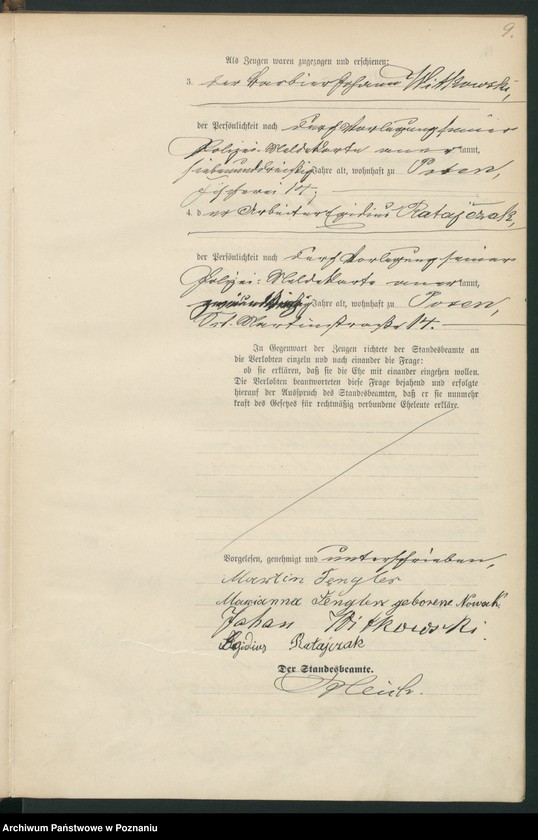 9.
Als Zeugen waren zugezogen und erschienen:
3. der Barbier Johann Witkowski,
der Persönlichkeit nach durch Vorlegung seiner
Polizei-Meldekarte anerkannt,
siebenunddreißig Jahre alt, wohnhaft zu Posen,
Fischerei 14;
4. der Arbeiter Egidius Ratajczak,
der Persönlichkeit nach durch Vorlegung seiner
Polizei-Meldekarte anerkannt,
Jahre alt, wohnhaft zu Posen,
St. Martinstraße 14.
In Gegenwart der Zeugen richtete der Standesbeamte an
die Verlobten einzeln und nach einander die Frage:
ob sie erklären, daß sie die Ehe mit einander eingehen wollen.
Die Verlobten beantworteten diese Frage bejahend und erfolgte
hierauf der Ausspruch des Standesbeamten, daß er sie nunmehr
kraft des Gesetzes für rechtmäßig verbundene Eheleute erkläre.
Vorgelesen, genehmigt und unterschrieben,
Martin Fengler
Marianna Fengler geborene Nowak
Johan Witkowski.
Egidius Ratajczak
Der Standesbeamte.
Archiwum Państwowe w Poznaniu